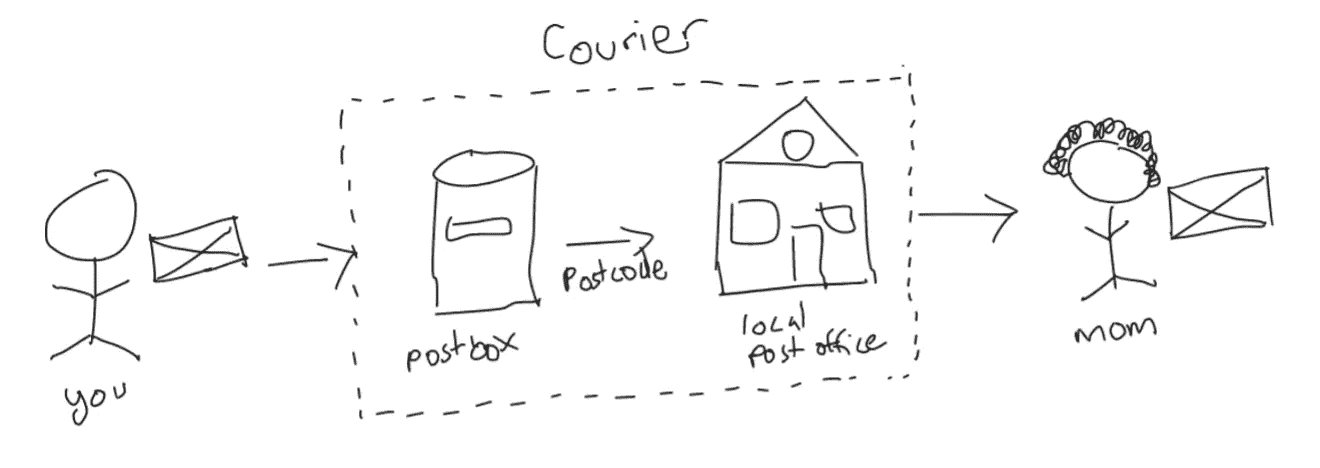 Courier
you
postbox
postcode
local
post office
mom